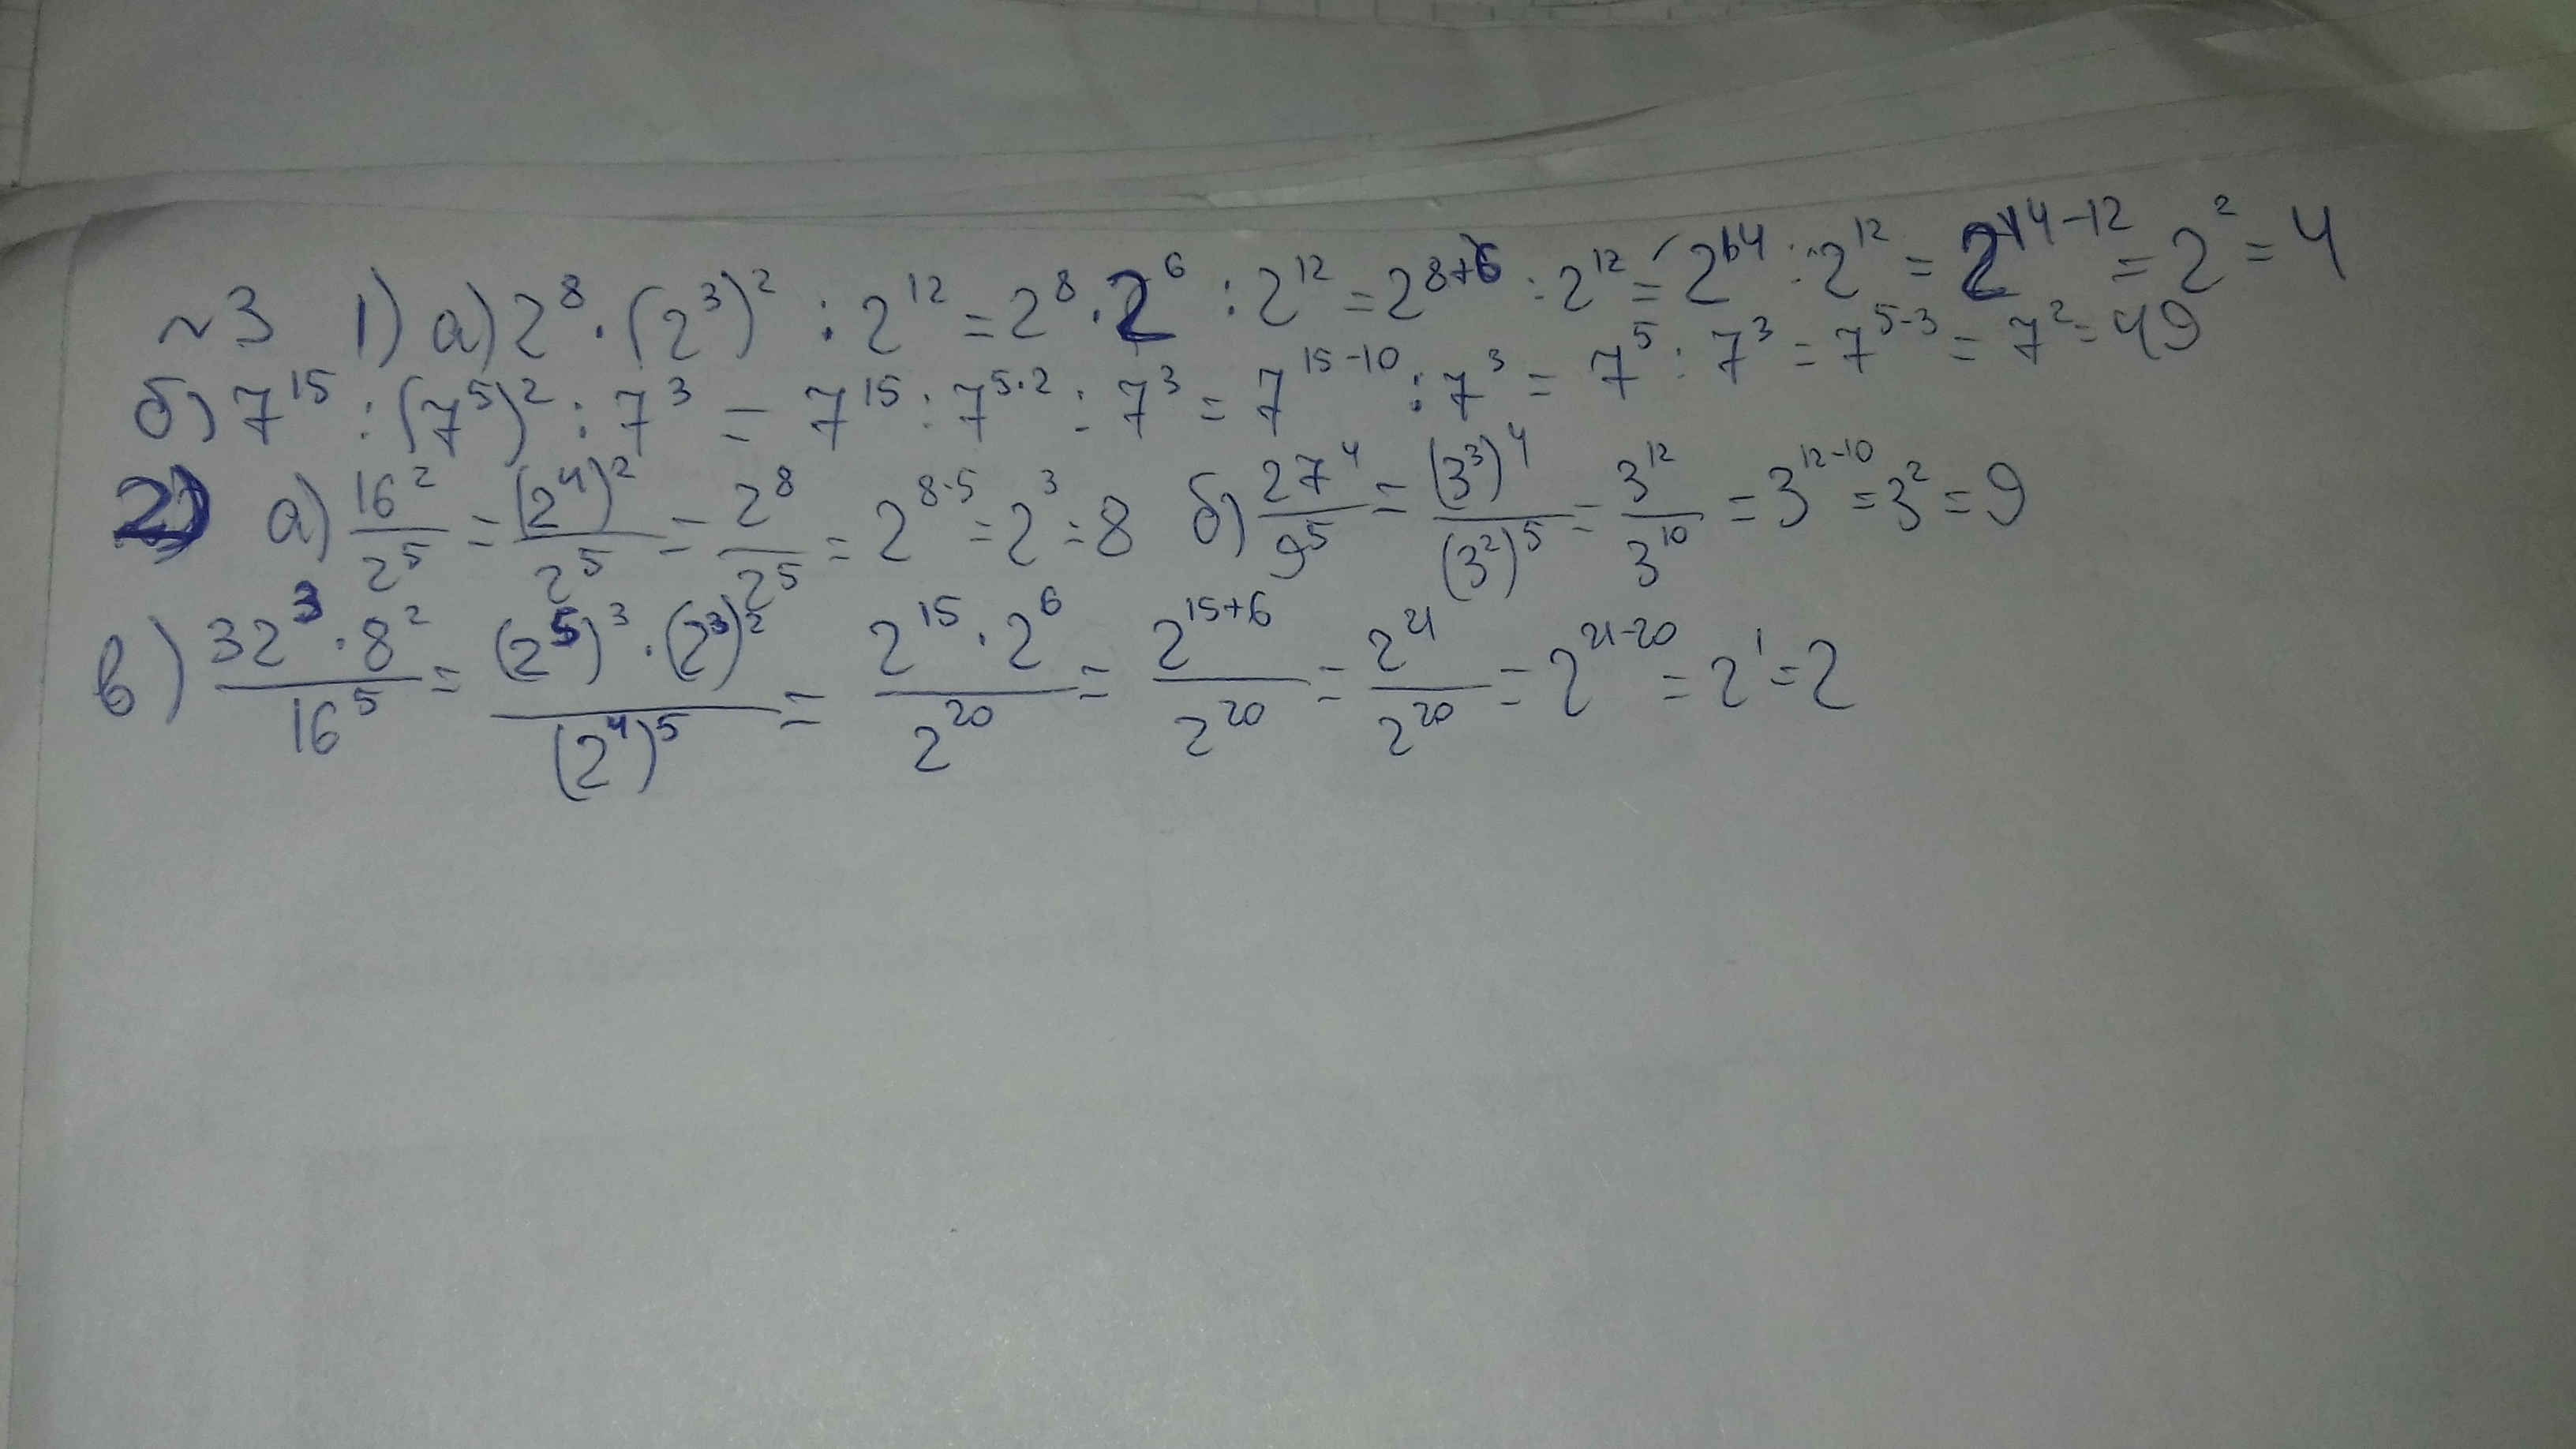 ~3 1) а) 2⁸ · (2³)² : 2¹² = 2⁸ · 2⁶ : 2¹² = 2⁸⁺⁶ : 2¹² = 2¹⁴ : 2¹² = 2¹⁴⁻¹² = 2² = 4
б) 7¹⁵ : (7⁵)² : 7³ = 7¹⁵ : 7⁵·² : 7³ = 7¹⁵⁻¹⁰ : 7³ = 7⁵ : 7³ = 7⁵⁻³ = 7² = 49
2) а) 16²/2⁵ = (2⁴)²/2⁵ = 2⁸/2⁵ = 2⁸⁻⁵ = 2³ = 8 б) 27⁴/9⁵ = (3³)⁴/(3²)⁵ = 3¹²/3¹⁰ = 3¹²⁻¹⁰ = 3² = 9
в) 32³ · 8²/16⁵ = (2⁵)³ · (2³)²/(2⁴)⁵ = 2¹⁵ · 2⁶/2²⁰ = 2¹⁵⁺⁶/2²⁰ = 2²¹/2²⁰ = 2²¹⁻²⁰ = 2¹ = 2